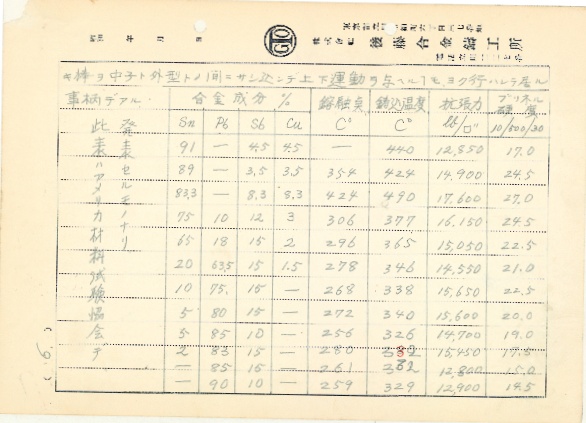 昭和　年　月　日
GTO
株式会社 後藤合金鋳工所
棒ヲ中子ト外型トノ間ニサシ込ンデ上下運動ヲ与ヘルコモヨク行ハレテ居ル
事柄デアル.
合金成分 % 鎔融点 鋳込温度 抗張力 ブリネル硬度
Sn Pb Sb Cu C° C° lb/□" 10/500/30
91 — 4.5 4.5 — 440 12,850 17.0
89 — 3.5 3.5 354 424 14,900 24.5
83.3 — 8.3 8.3 424 490 17,600 27.0
75 10 12 3 306 377 16,150 24.5
65 18 15 2 296 365 15,050 22.5
20 63.5 15 1.5 278 346 14,550 21.0
10 75. 15 — 268 338 15,650 22.5
5 80 15 — 272 340 15,600 20.0
5 85 10 — 256 326 14,700 19.0
2 83 15 — 280 15,450 17.5
— 85 15 — 261 12,800 15.0
— 90 10 — 259 329 12,900 14.5
此表ハアメリカ材料試験協会デ
発表セルモノナリ
(6.)